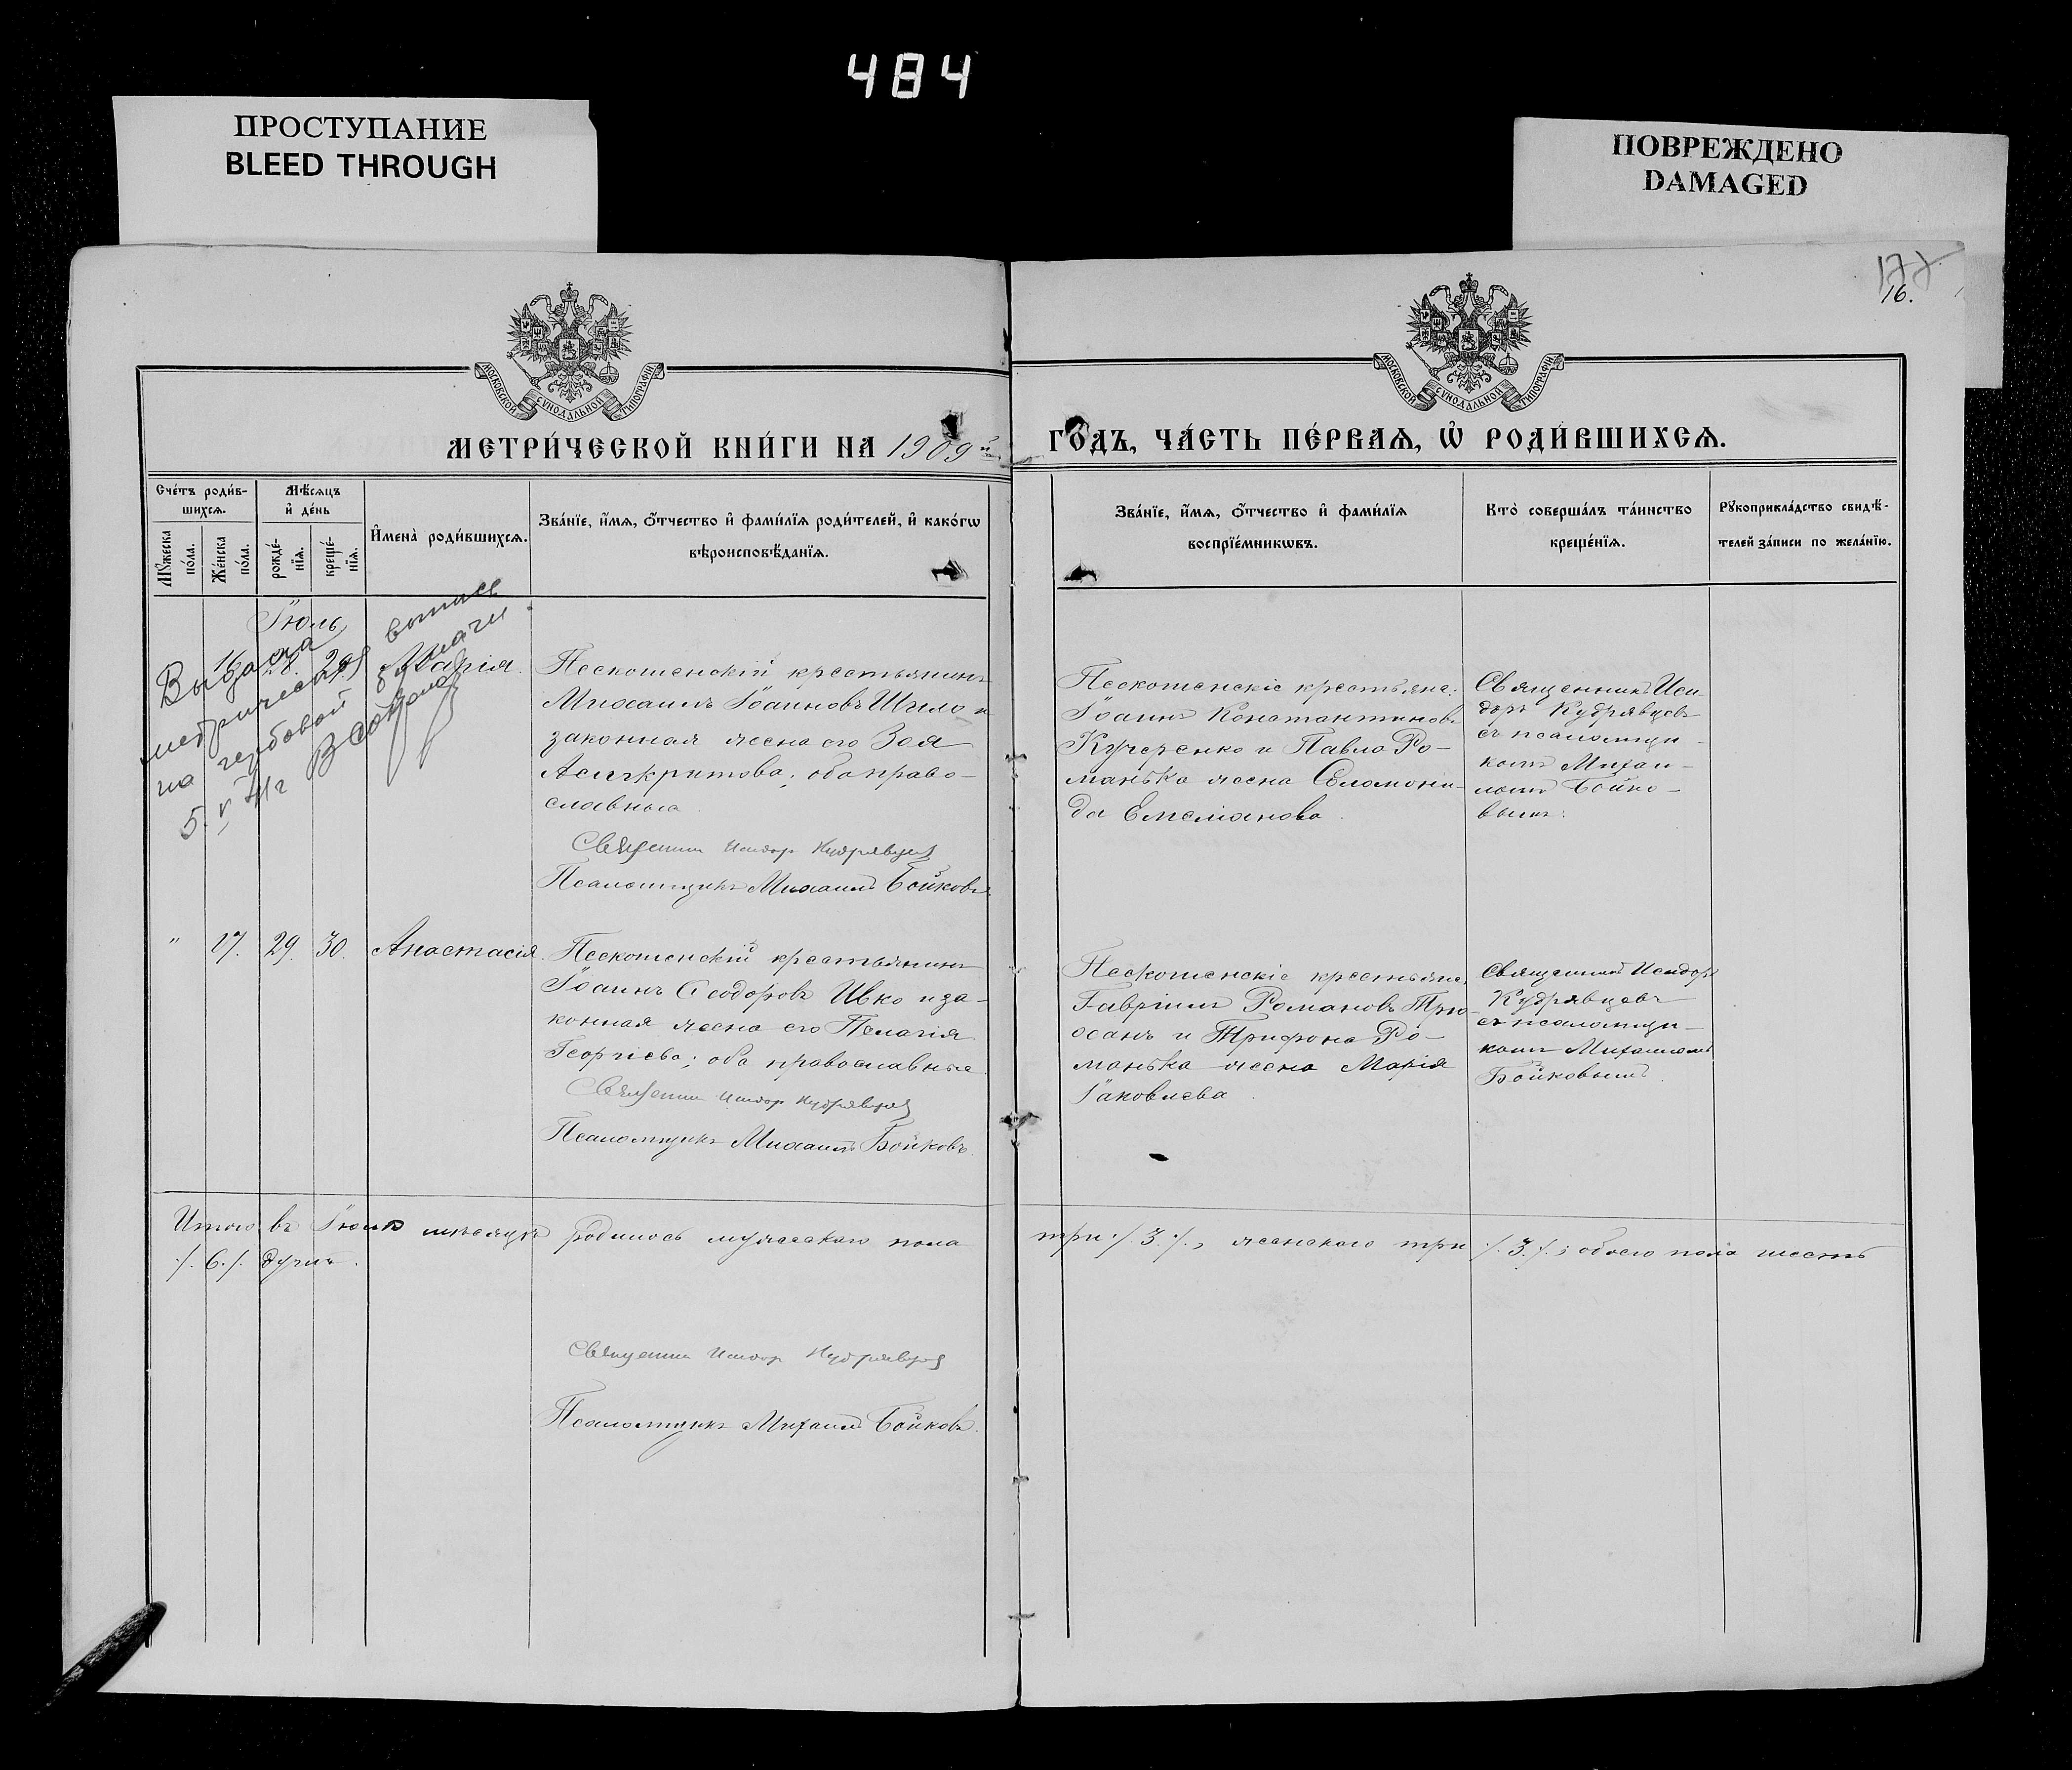 484
ПРОСТУПАНИЕ
BLEED THROUGH
ПОВРЕЖДЕНО
DAMAGED
177
16.
МОСКОВСКОЙ СѴНОДАЛЬНОЙ ТИПОГРАФІИ
МОСКОВСКОЙ СѴНОДАЛЬНОЙ ТИПОГРАФІИ
МЕТРИ́ЧЕСКОЙ КНИ́ГИ НА 1909й ГО́ДЪ, ЧА́СТЬ ПЕ́РВАѦ, Ѡ҆ РОДИ́ВШИХСѦ.
Сче́тъ роди́в-
шихсѧ.
Мѣ́сѧцъ
и҆ де́нь
Мꙋ́жеска по́ла.
Же́нска по́ла.
рожде́-нїѧ.
креще́-нїѧ.
И҆мена̀ роди́вшихсѧ.
Зва́нїе, и҆́мѧ, ѻ҆́тчество и҆ фами́лїѧ роди́телей, и҆ како́гѡ
вѣроисповѣ́данїѧ.
Зва́нїе, и҆́мѧ, ѻ҆́тчество и҆ фами́лїѧ
воспрїе́мникѡвъ.
Кто̀ соверша́лъ та́инство
креще́нїѧ.
Рꙋкоприкла́дство свидѣ́-
телей за́писи по жела́нїю.
Іюль
Выдана выпись
метрическая
на гербовой бумаги
5. V 41г
16 28. 29 Марія.
Пескошенскій крестьянинъ
Михаилъ Іоанновъ Шило и
законная жена его Зоя
Асигкритова; оба право-
славные
Священникъ Исидор Кудрявцев
Псаломщикъ Михаилъ Бойковъ.
Пескошенскіе крестьяне:
Іоаннъ Константиновъ
Кучеренко и Павла Ро-
манька жена Соломони-
да Емеліанова.
Священникъ Иси-
доръ Кудрявцевъ
съ псаломщи-
комъ Михаи-
ломъ Бойко-
вымъ.
" 17. 29. 30. Анастасія.
Пескошенскій крестьянинъ
Іоаннъ Ѳеодоровъ Ивко и за-
конная жена его Пелагія
Георгіева; оба православные
Священник Исидор Кудрявцев
Псаломщикъ Михаилъ Бойковъ.
Пескошенскіе крестьяне
Гавріилъ Романовъ Трю-
ханъ и Трифона Ро-
манька жена Марія
Іаковлева.
Священникъ Исидоръ
Кудрявцевъ
съ псаломщи-
комъ Михаиломъ
Бойковымъ.
Итого въ Іюлѣ мѣсяцѣ родилось мужескаго пола три ./. 3. /., женскаго три ./. 3. /.; обоего пола шесть
./. 6. /. душъ.
Священник Исидор Кудрявцев
Псаломщикъ Михаилъ Бойковъ.